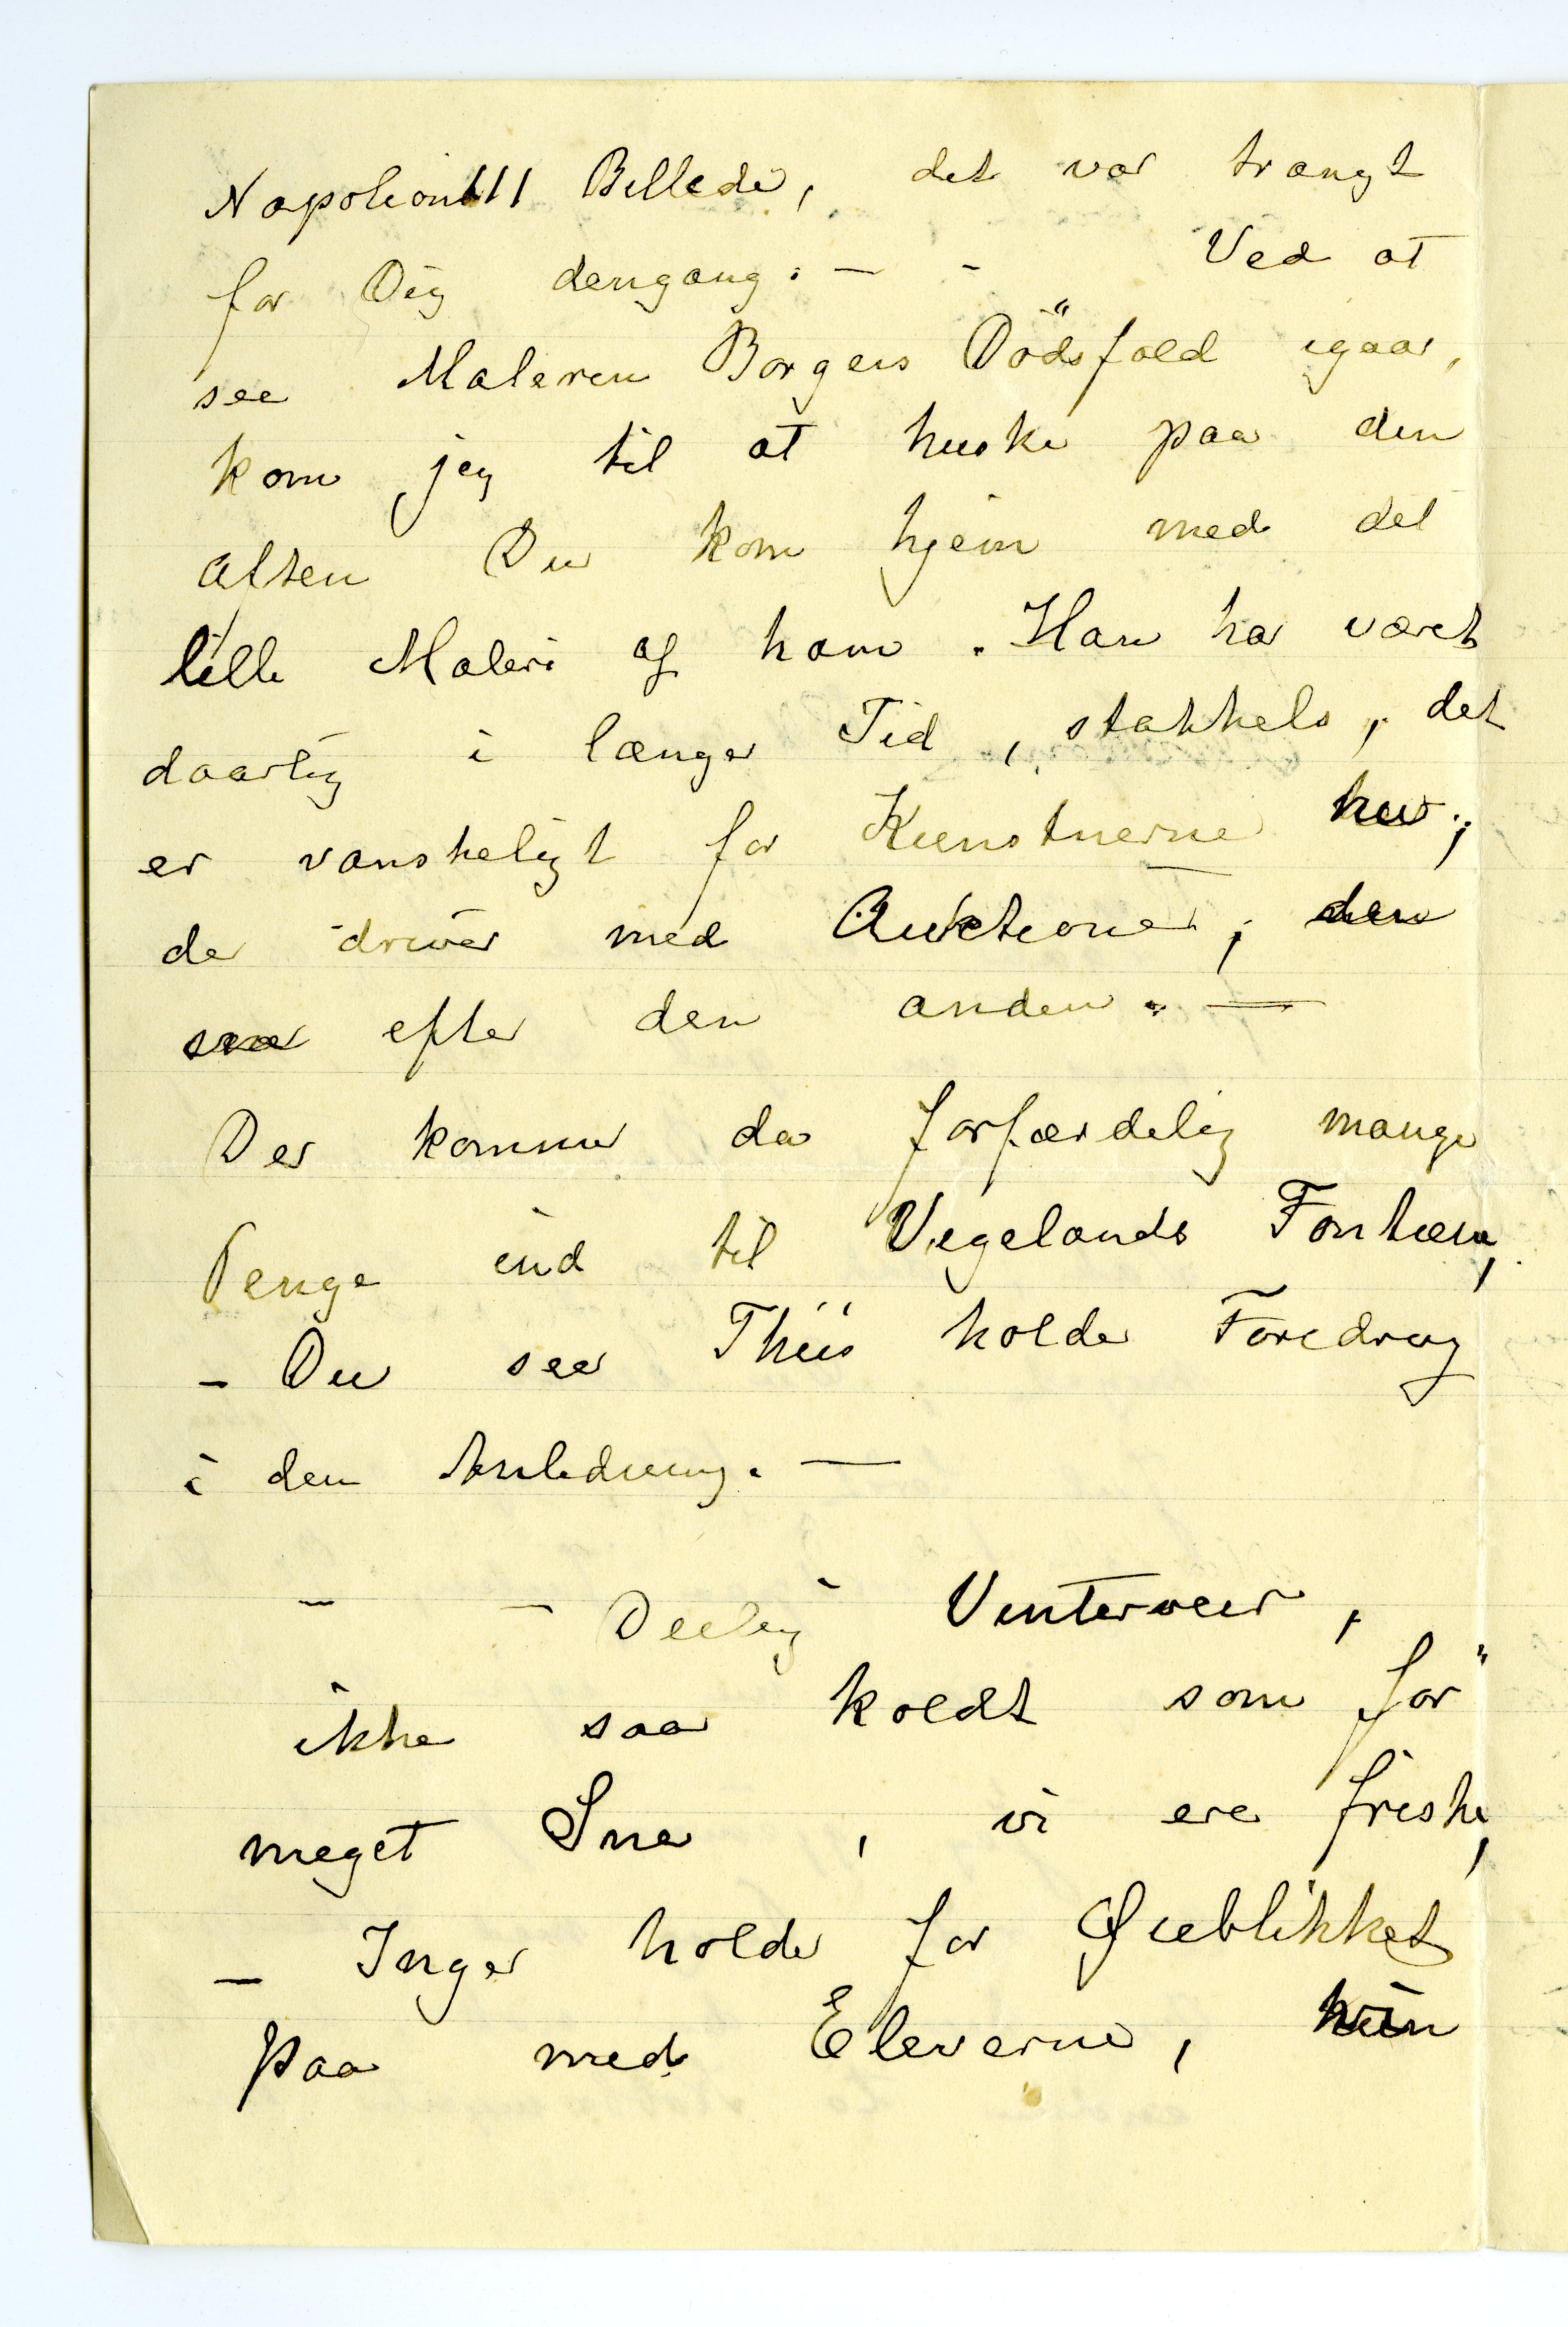 NapoleonIII Billede, det var trangt
for Dig dengang. — - Ved at
see Maleren Borgens Dödsfald igaar,
kom jeg til at huske paa den
Aften Du kom hjem med det
lille Maleri af ham. Han har været
daarlig i længer Tid, stakkels, det
er vanskeligt for Kunstnerne her;
de driver med Auktioner, den
ene efter den anden. —
Der kommer da forfærdelig mange
Penge ind til Vigelands Fontæne,
- Du seer Thiis holder Foredrag
i den Anledning. —
- - Deilig Vinterveir,
ikke saa koldt som för
meget Sne, vi ere friske,
- Inger holder for Øieblikket
paa med Eleverne, hun